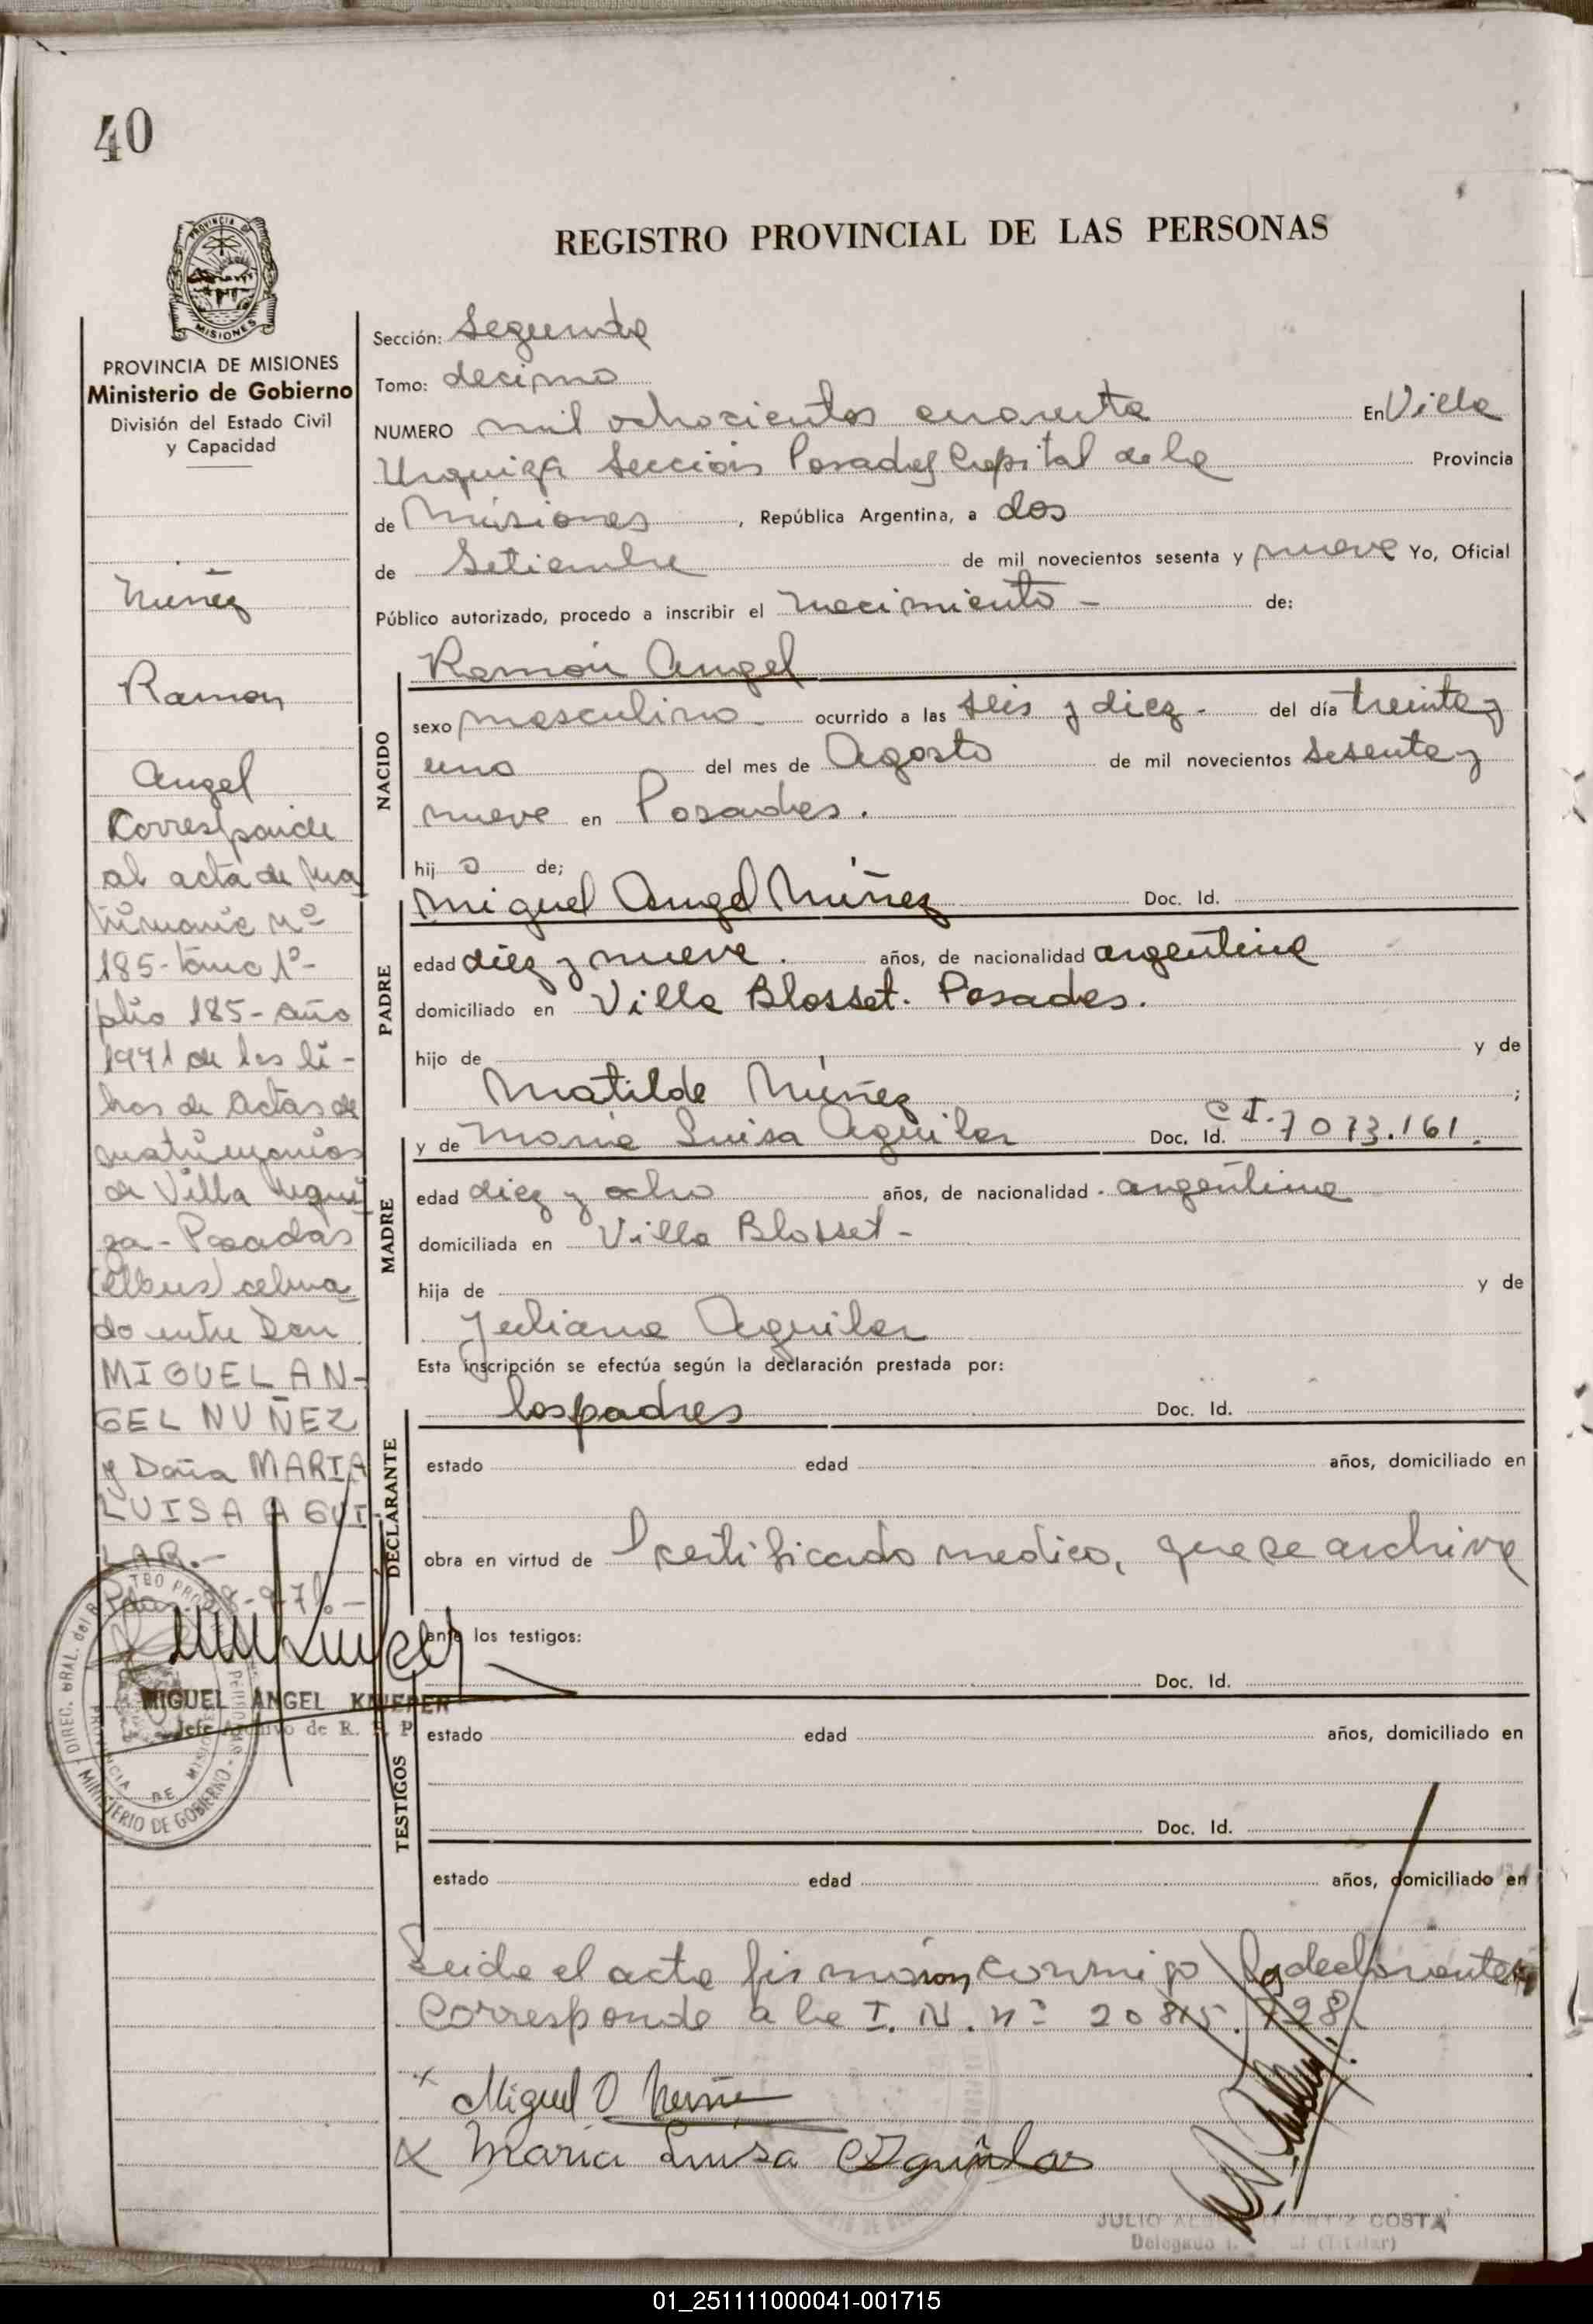 40
REGISTRO PROVINCIAL DE LAS PERSONAS
PROVINCIA DE MISIONES
Ministerio de Gobierno
División del Estado Civil
y Capacidad
Núñez
Ramon
Angel
Corresponde
al acta de Ma
trimonio nº
185-tomo 1º-
folio 185-año
1971 de los li-
bros de Actas de
matrimonios
de Villa Urqui
za-Posadas
celebra
do entre Don
MIGUEL AN-
GEL NUÑEZ
y Doña MARIA
LUISA AGUI
LAR.-
MIGUEL ANGEL KNIEPER
Jefe Archivo de R. P. P.
DIREC. GRAL. del R
MINISTERIO DE GOBIERNO
PROVINCIA DE MISIONES
Sección: Segunda
Tomo: decimo
NUMERO mil ochocientos cuarenta En Villa
Urquiza Sección Posadas Capital de la Provincia
de Misiones, República Argentina, a dos
de Setiembre de mil novecientos sesenta y nueve Yo, Oficial
Público autorizado, procedo a inscribir el nacimiento - de:
Ramón Angel
NACIDO
sexo masculino - ocurrido a las seis y diez - del día treinta y
uno del mes de Agosto de mil novecientos sesenta y
nueve en Posadas.
hij o de;
Miguel Angel Núñez Doc. Id.
PADRE
edad diez y nueve. años, de nacionalidad argentina
domiciliado en Villa Blosset. Posadas.
hijo de y de
Matilde Núñez ;
y de Maria Luisa Aguilar Doc. Id. C I. 7 073.161.
MADRE
edad diez y ocho años, de nacionalidad - argentina
domiciliada en Villa Blosset -
hija de y de
Juliana Aguilar
Esta inscripción se efectúa según la declaración prestada por:
los padres Doc. Id.
DECLARANTE
estado edad años, domiciliado en
obra en virtud de certificado medico, que se archiva
ante los testigos:
Doc. Id.
TESTIGOS
estado edad años, domiciliado en
Doc. Id.
estado edad años, domiciliado en
Leida el acta firmaron conmigo los declarantes
Corresponde a la I. N. nº
x Miguel A Núñe
x Maria Luisa Aguilar
JULIO COSTA
Delegado (Titular)
01_251111000041-001715